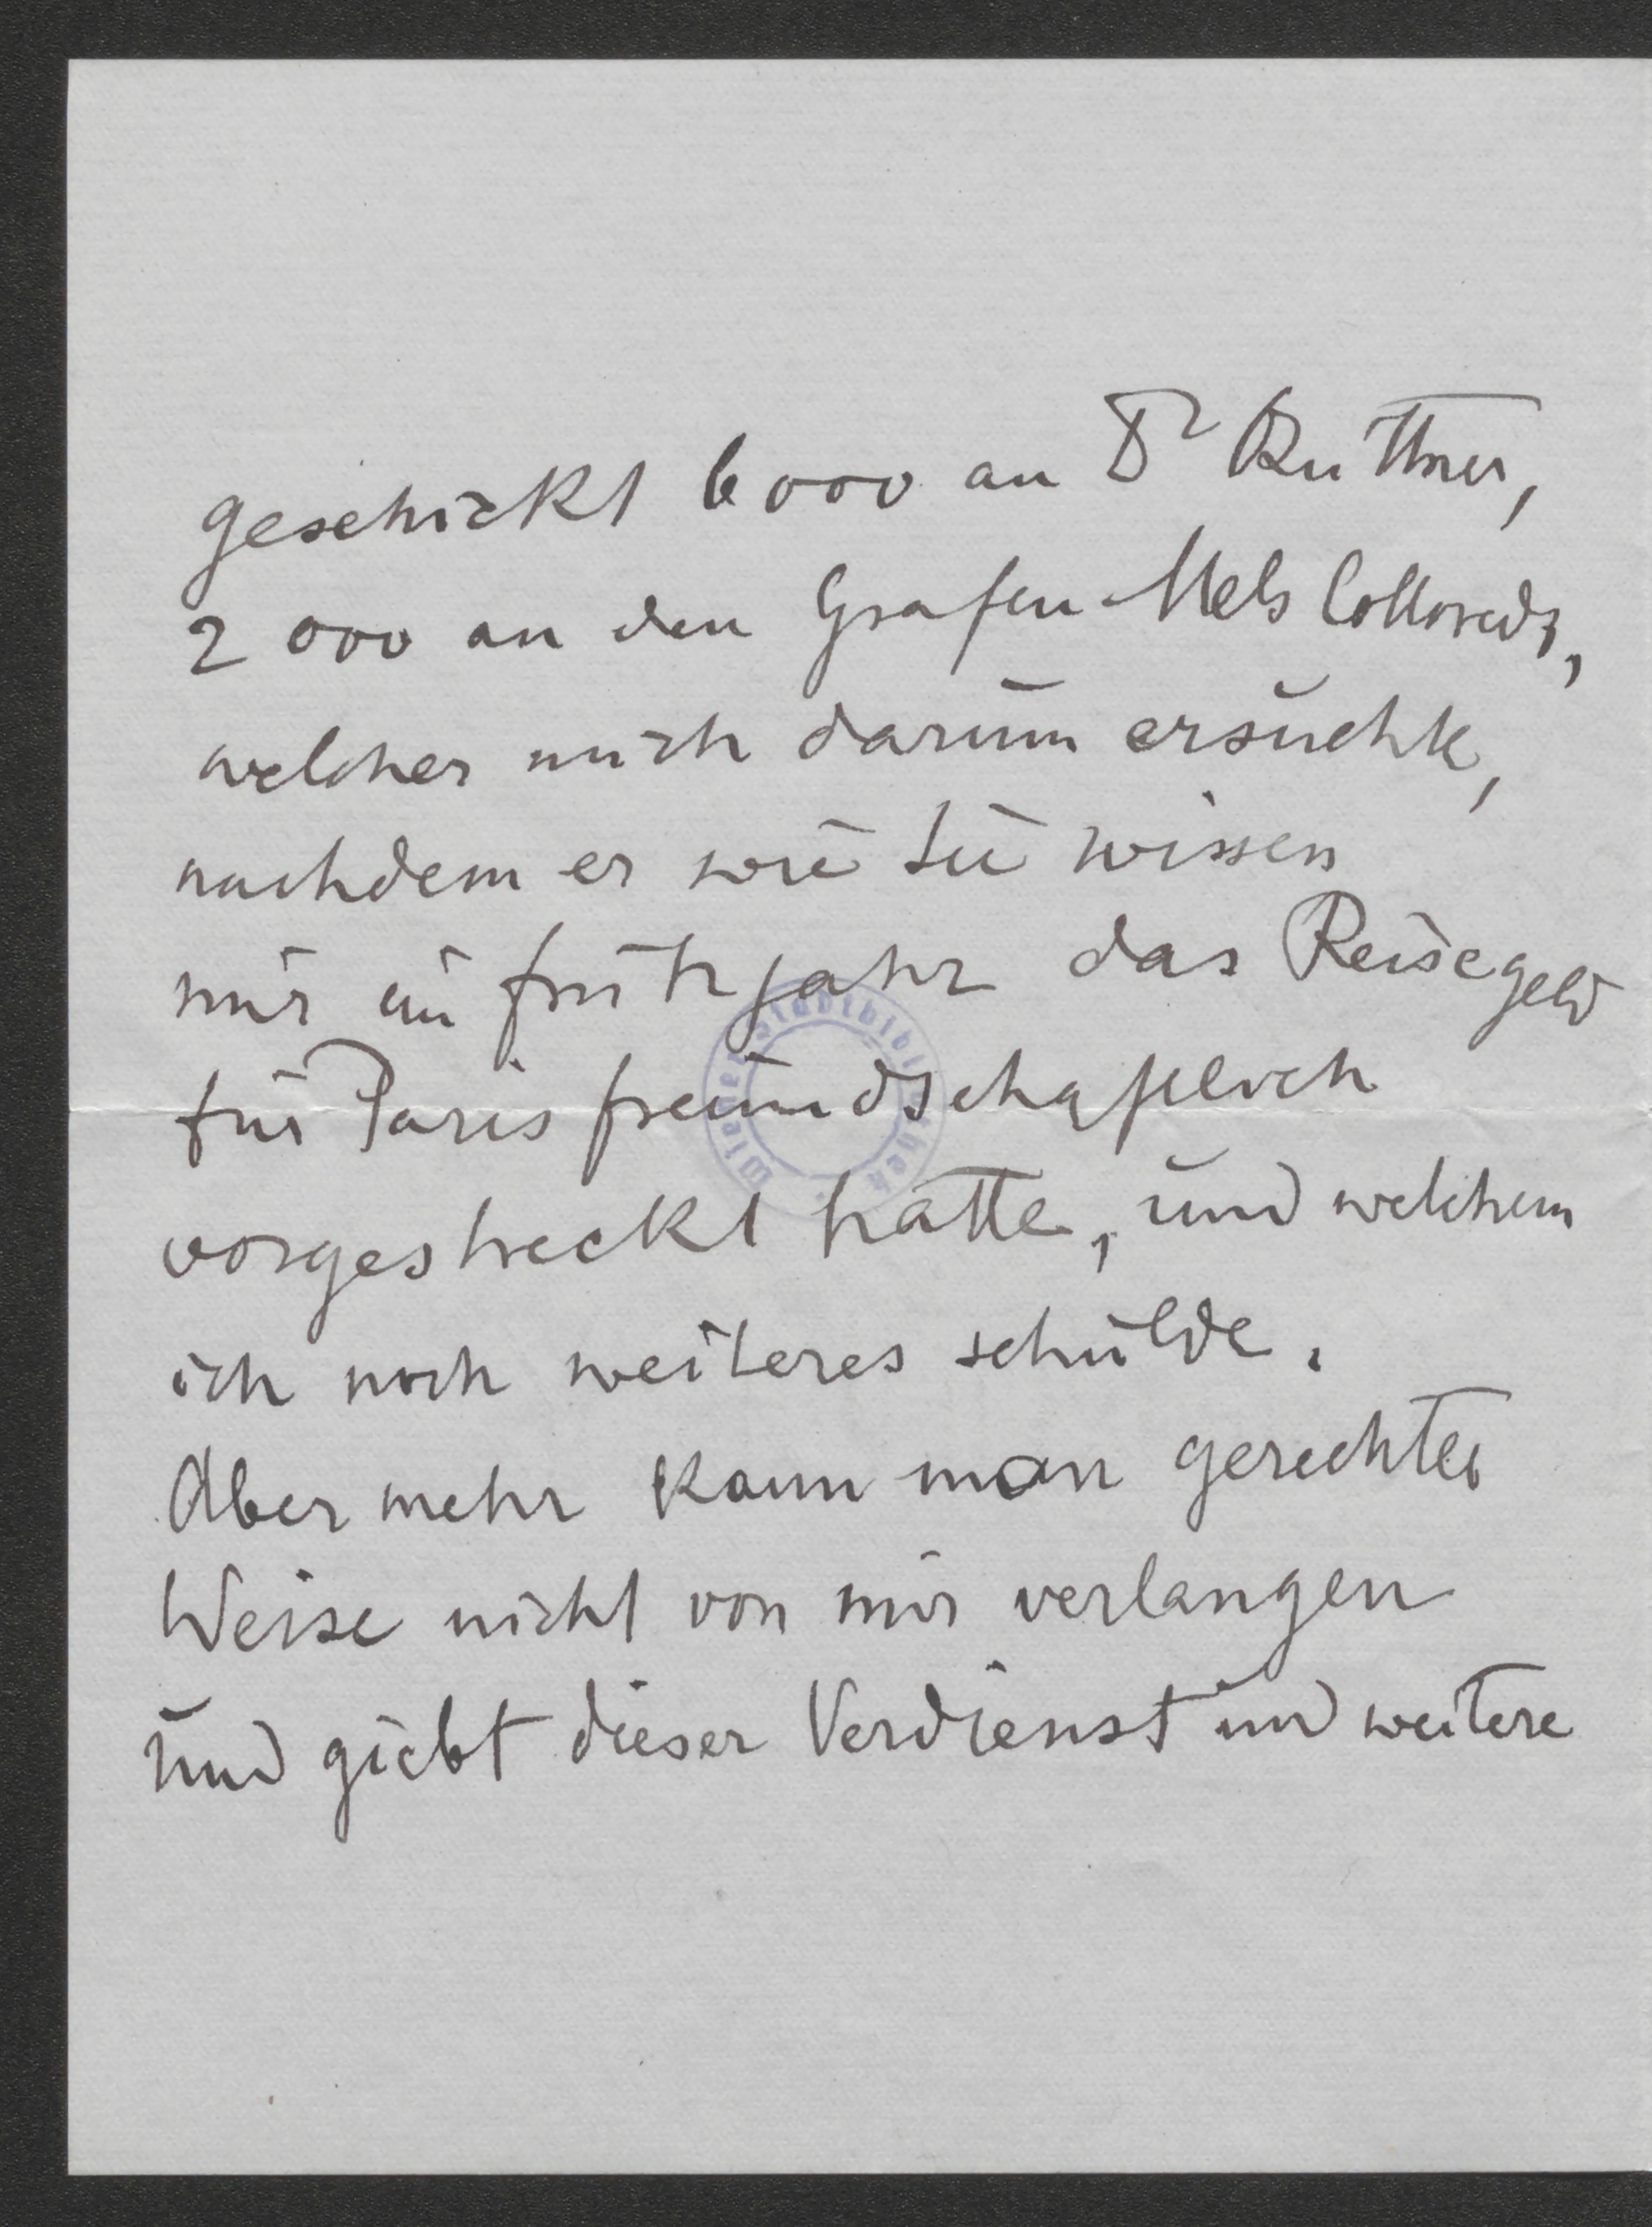 geschickt 6000 an Dr Ruttner,
2000 an den Grafen Mels Colloredo,
welcher mich darum ersuchte,
nachdem er wie Sie wissen
mir im Frühjahr das Reisegeld
für Paris freundschaftlich
vorgestreckt hatte, und welchem
ich noch weiteres schulde.
Aber mehr kann man gerechter
Weise nicht von mir verlangen
und giebt dieser Verdienst und weitere
Wiener Stadtbibliothek